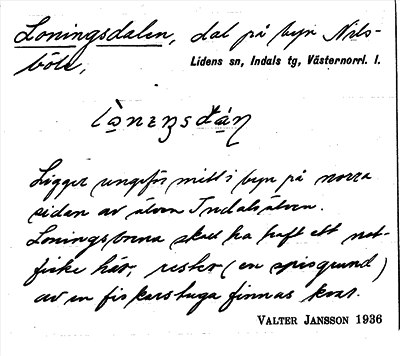 Loningsdalen, dal på byn Nils-
böle, Lidens sn, Indals tg, Västernorrl. l.
Ligger ungefär mitt i byn på norra
sidan av älven Indalsälven.
Loningsborna skall ha haft ett not-
fiske här, rester (en spisgrund)
av en fiskarstuga finnas kvar.
VALTER JANSSON 1936